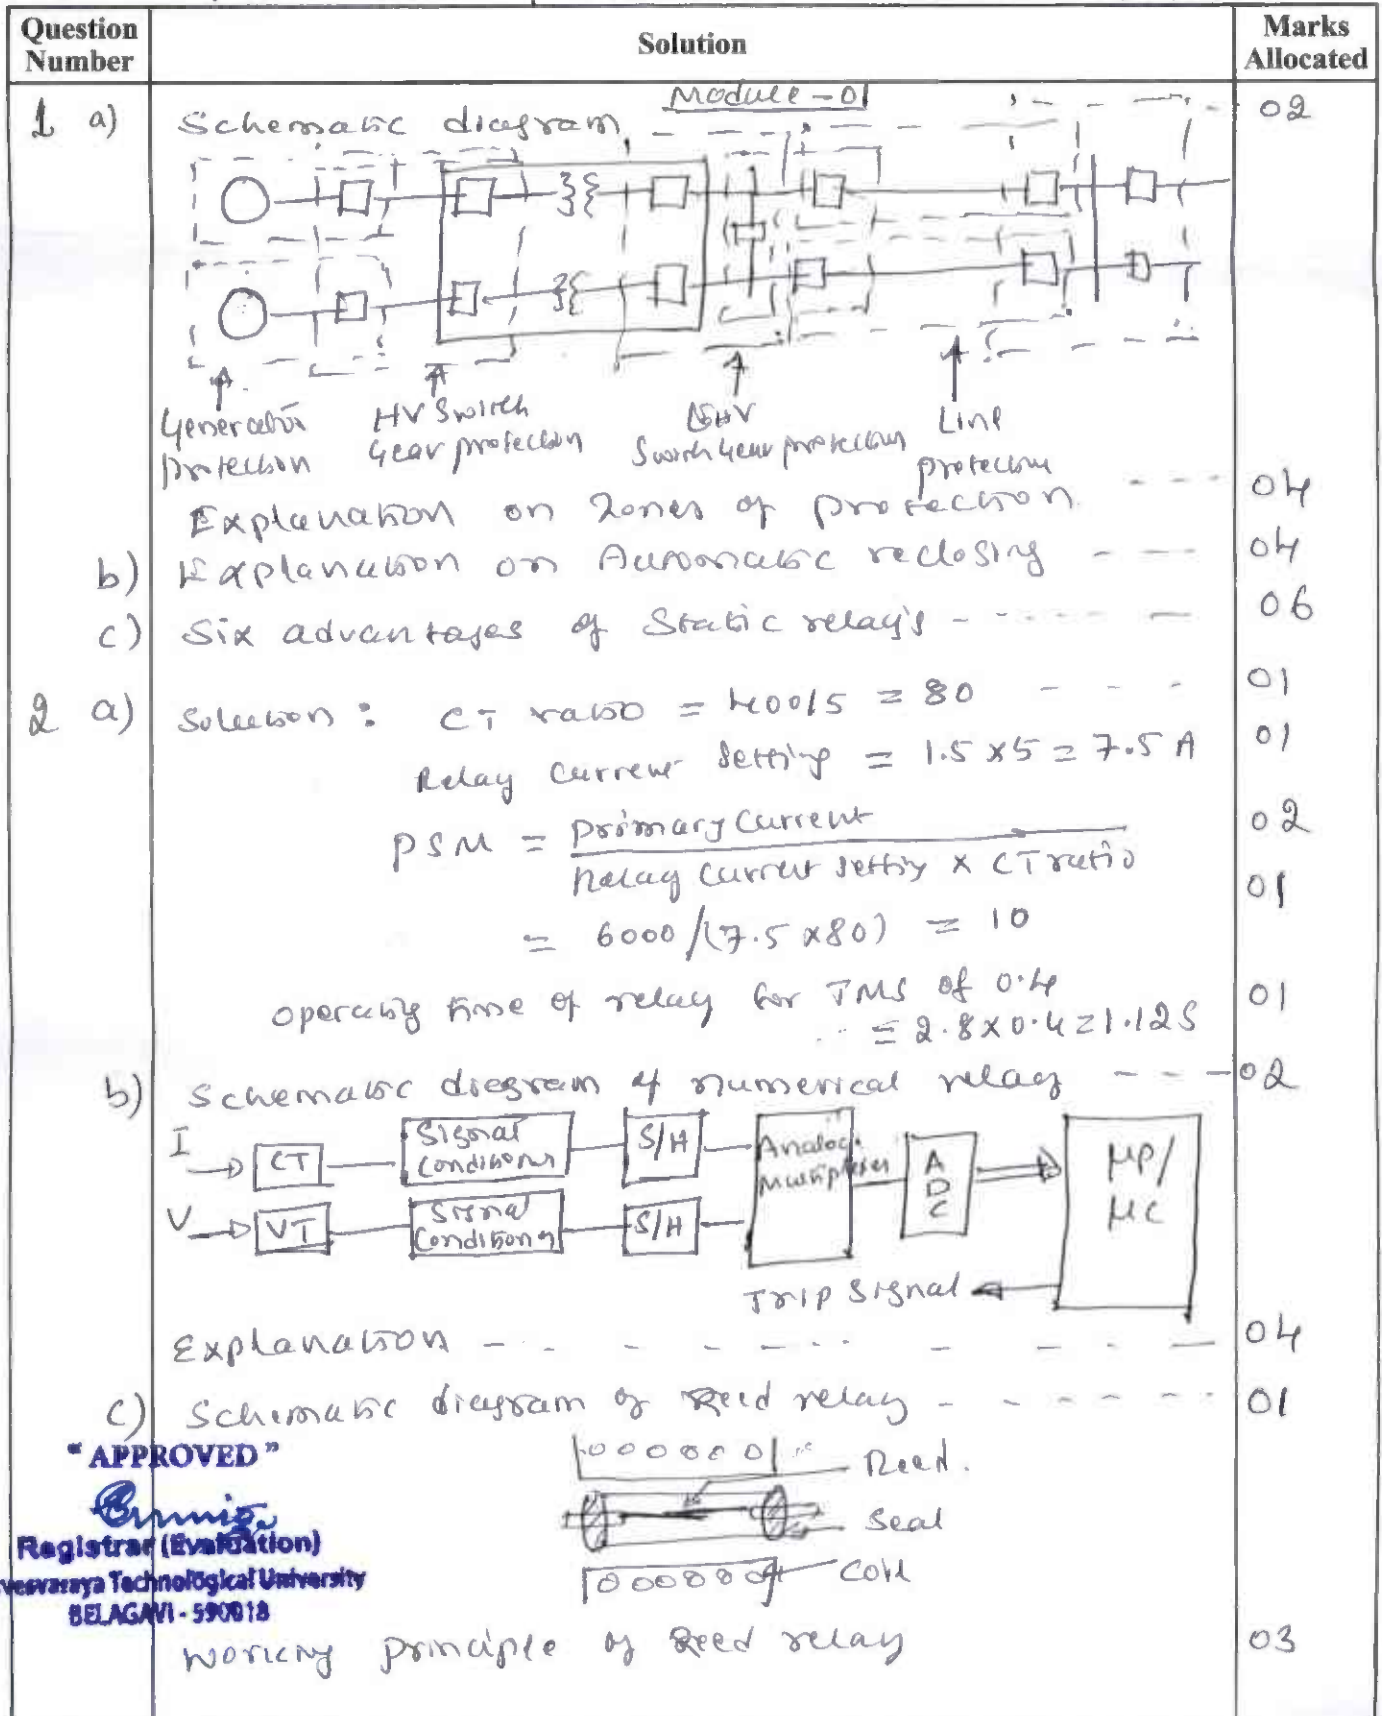 Question Number
Solution
Marks Allocated
Module-01
1 a) Schematic diagram 02
Generator protection
HV Switch Gear protection
EHV Switch Gear protection
Line protection
Explanation on Zones of protection. 04
b) Explanation on Automatic reclosing 04
c) Six advantages of Static relay's 06
2 a) Solution : CT ratio = 400/5 = 80 01
Relay Current Setting = 1.5 x 5 = 7.5 A 01
PSM = Primary Current 02
Relay Current Setting x CT ratio
= 6000/(7.5 x 80) = 10 01
Operating time of relay for TMS of 0.4 01
= 2.8 x 0.4 = 1.12 S
b) Schematic diagram of numerical relay 02
I CT Signal Conditioning S/H Analog Multiplexer ADC μP/μC
V VT Signal Conditioning S/H
Trip Signal
Explanation 04
c) Schematic diagram of Reed relay 01
Reed.
Seal
Coil
" APPROVED "
Registrar (Evaluation)
Technological University
BELAGAVI - 590018
Working principle of Reed relay 03